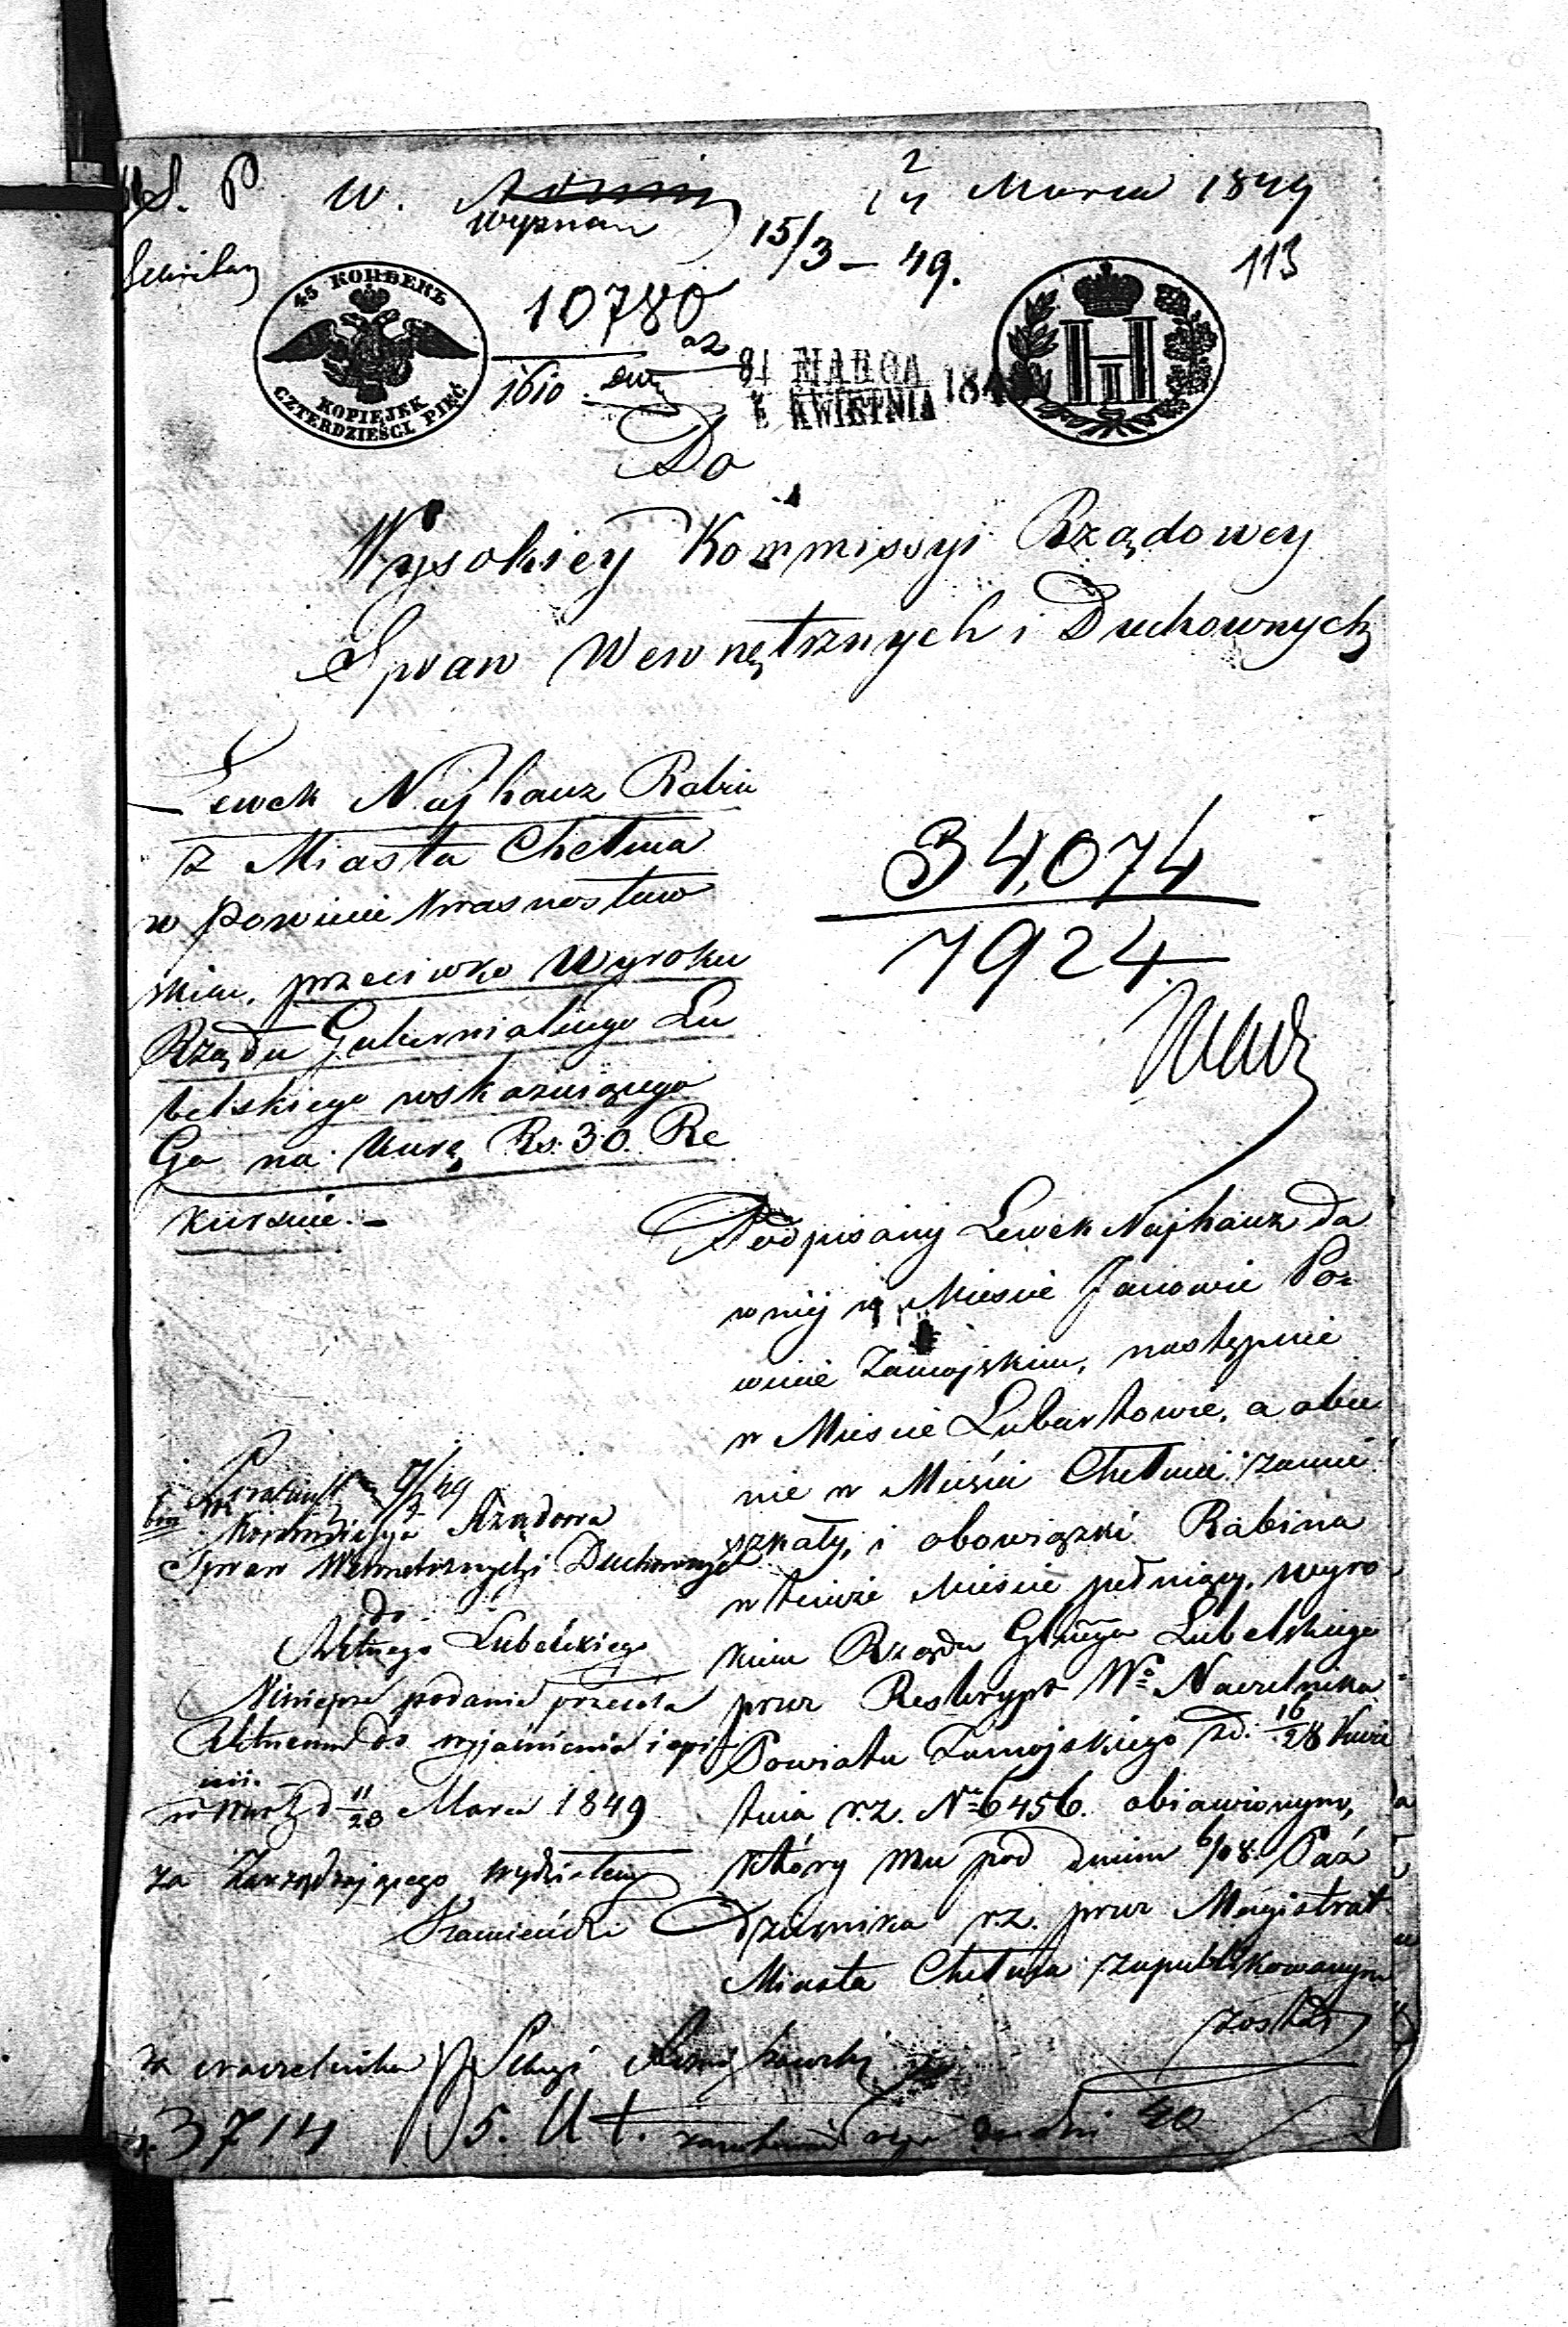 S. P. W.
wyznan
2
14 Marca 1849
15/3 – 49.
113
45 КОПѢЕКЪ
KOPIEJEK
CZTERDZIEŚCI PIĘĆ
10780
1610
31 MARCA
KWIETNIA 184
Do
Wysokiey Kommissyi Rządowey
Spraw Wewnętrznych i Duchownych
Lewek Najhauz Rabin
z Miasta Chełma
w Powiecie Krasnostaw
skim, przeciwko Wyroku
Rządu Gubernialnego Lu
belskiego wskazuiącego
Go na karę Rs. 30. Re
kursuie. –
34,074
7924
Podpisany Lewek Najhauz da
wniej w Mieście Janowie Po-
wiecie Zamojskim, następnie
w Mieście Lubartowie, a obec
nie w Mieście Chełmie zamie
szkały, i obowiązki Rabina
w temże Mieście pełniący, wyro
kiem Rządu Glnego Lubelskiego
przez Reskrypt Wo Naczelnika
Powiatu Zamojskiego z d. 16/28 Kwie
tnia r. z. No 6456. obiawionym,
który mu pod dniem 6/18 Paź
dziernika r. z. przez Magistrat
Miasta Chełma zapublikowanym
został
Kommissya Rządowa
Spraw Wewnetrznych i Duchownych
do
Lubelskiego
Niniejsze podanie przesyła
do wyjaśnienia i opi
nii.
w Warsz d. 11/23 Marca 1849
za Zarządzającego wydziałem
Kamieński
za Naczelnika
3714